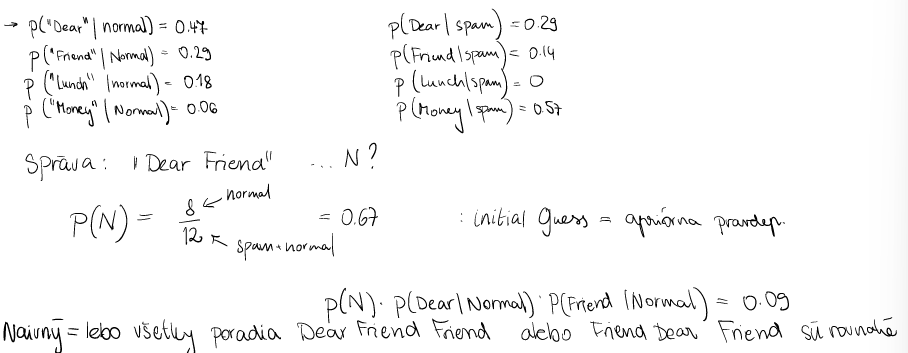 → p("Dear" | normal) = 0.47
p("Friend" | Normal) = 0.29
p ("Lunch" | normal) = 0.18
p ("Money" | Normal) = 0.06
p(Dear | spam) = 0.29
p(Friend | spam) = 0.14
p (Lunch | spam) = 0
p(Money | spam) = 0.57
Správa: "Dear Friend" ... N?
P(N) = 8/12 = 0.67 : initial guess = apriórna pravdep.
normal
spam+normal
p(N) · p(Dear | Normal) · P(Friend | Normal) = 0.09
Naivný = lebo všetky poradia Dear Friend Friend alebo Friend Dear Friend sú rovnaké